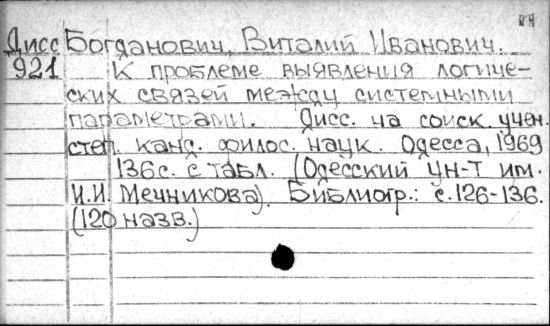 Дисс Богданович, Виталий Иванович.
921 К проблеме выявления логиче-
ских связей между системными
параметрами. Дисс. на соиск. учен.
степ. канд. филос. наук. Одесса, 1969
136с. с табл. (Одесский ун-т им.
И.И. Мечникова). Библиогр.: с.126-136.
(120 назв.)